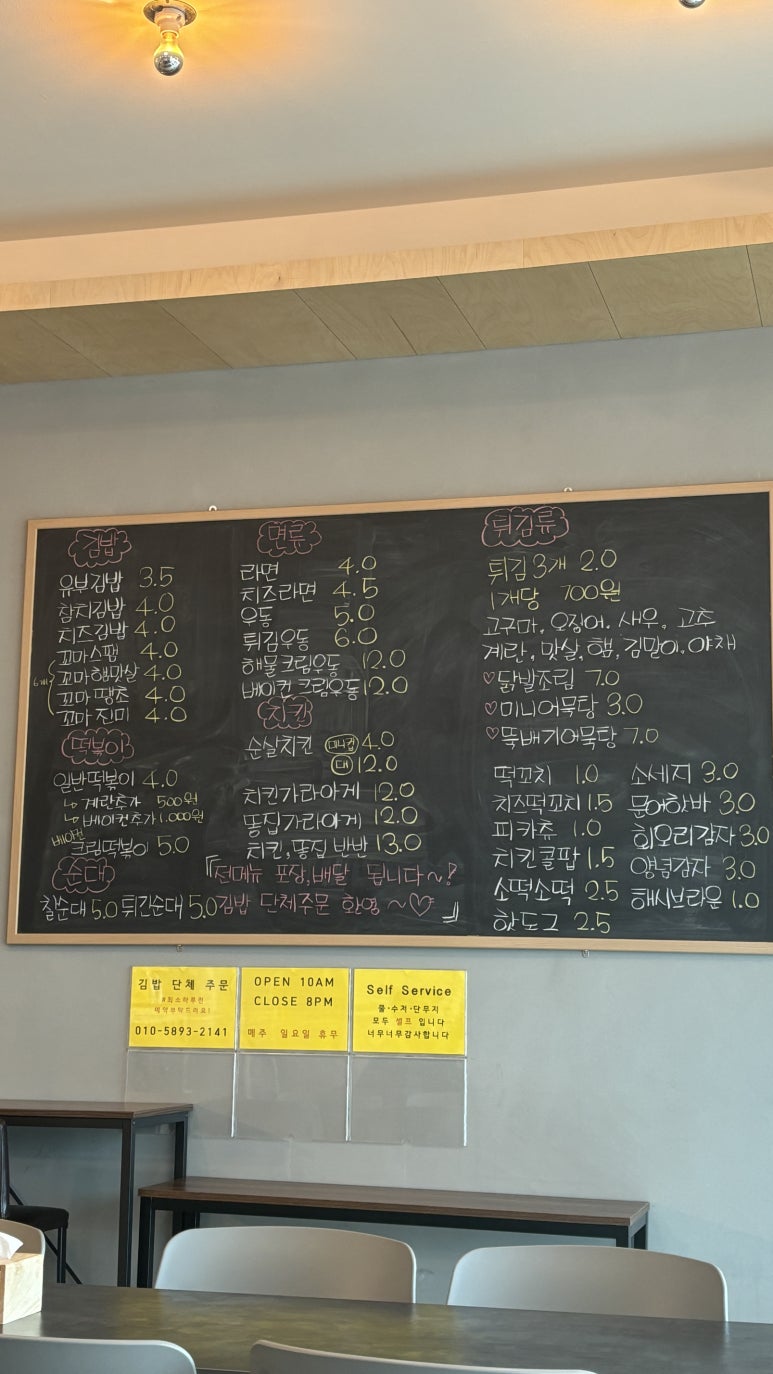 김밥
유부김밥 3.5
참치김밥 4.0
치즈김밥 4.0
꼬마스팸 4.0
꼬마햄맛살 4.0
꼬마땡초 4.0
꼬마진미 4.0
6개
떡볶이
일반떡볶이 4.0
↳계란추가 500원
↳베이컨추가 1.000원
베이컨
크림떡볶이 5.0
순대
찰순대 5.0 튀긴순대 5.0
면류
라면 4.0
치즈라면 4.5
우동 5.0
튀김우동 6.0
해물크림우동 12.0
베이컨크림우동 12.0
치킨
순살치킨 미니컵 4.0
대 12.0
치킨가라아게 12.0
똥집가라아게 12.0
치킨,똥집 반반 13.0
『전메뉴 포장,배달 됩니다~!
김밥 단체주문 환영~♡』
튀김류
튀김3개 2.0
1개당 700원
고구마, 오징어, 새우, 고추
계란, 맛살, 햄, 김말이, 야채
♡닭발조림 7.0
♡미니어묵탕 3.0
♡뚝배기어묵탕 7.0
떡꼬치 1.0
치즈떡꼬치 1.5
피카츄 1.0
치킨콜팝 1.5
소떡소떡 2.5
핫도그 2.5
소세지 3.0
문어핫바 3.0
회오리감자 3.0
양념감자 3.0
해시브라운 1.0
김밥 단체 주문
#최소하루전
예약부탁드려요!
010-5893-2141
OPEN 10AM
CLOSE 8PM
매주 일요일 휴무
Self Service
물·수저·단무지
모두 셀프 입니다
너무너무감사합니다